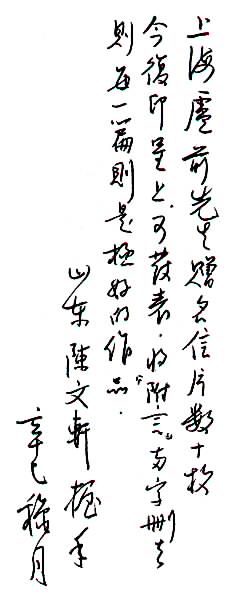 上海盧前先生贈名信片數十枚
今復印呈上.可發表.将“附言”等字删去
則每一篇則是極好的作品.
山东陳文軒握手
辛巳穐月